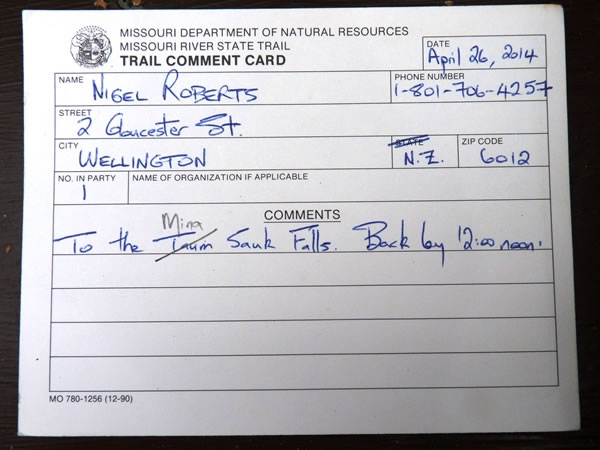 MISSOURI DEPARTMENT OF NATURAL RESOURCES
MISSOURI RIVER STATE TRAIL
TRAIL COMMENT CARD
DATE
April 26, 2014
NAME
NIGEL ROBERTS
PHONE NUMBER
1-801-706-4257
STREET
2 Gloucester St.
CITY
WELLINGTON
STATE
N.Z.
ZIP CODE
6012
NO. IN PARTY
1
NAME OF ORGANIZATION IF APPLICABLE
COMMENTS
Mina
To the Taum Sauk Falls. Back by 12:00 noon.
MO 780-1256 (12-90)